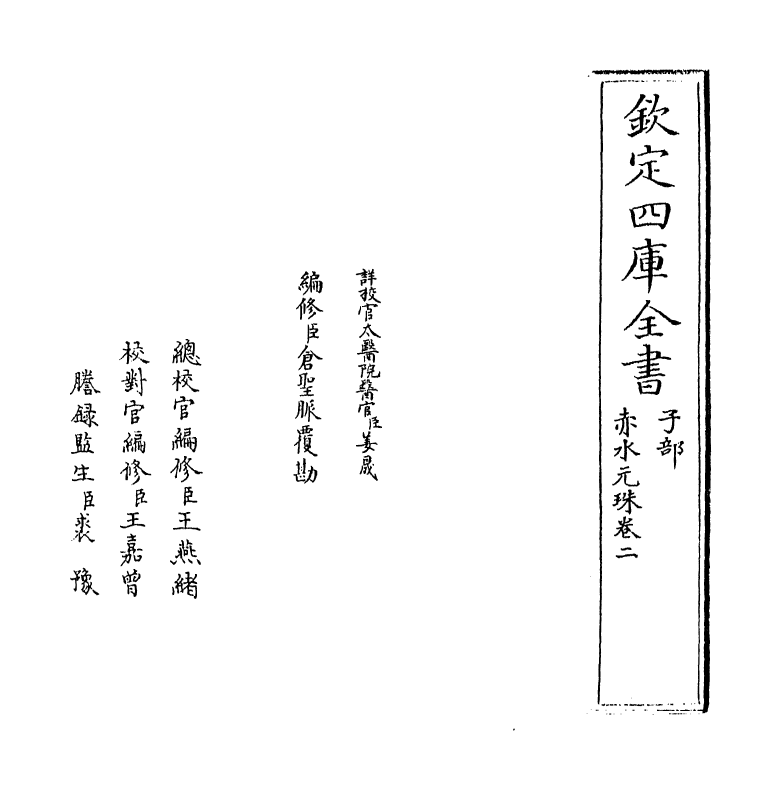 欽定四庫全書
子部
赤水元珠卷二
詳校官太醫院醫官臣姜晟
編修臣倉聖脈覆勘
總校官編修臣王燕緒
校對官編修臣王嘉曾
謄錄監生臣裘豫